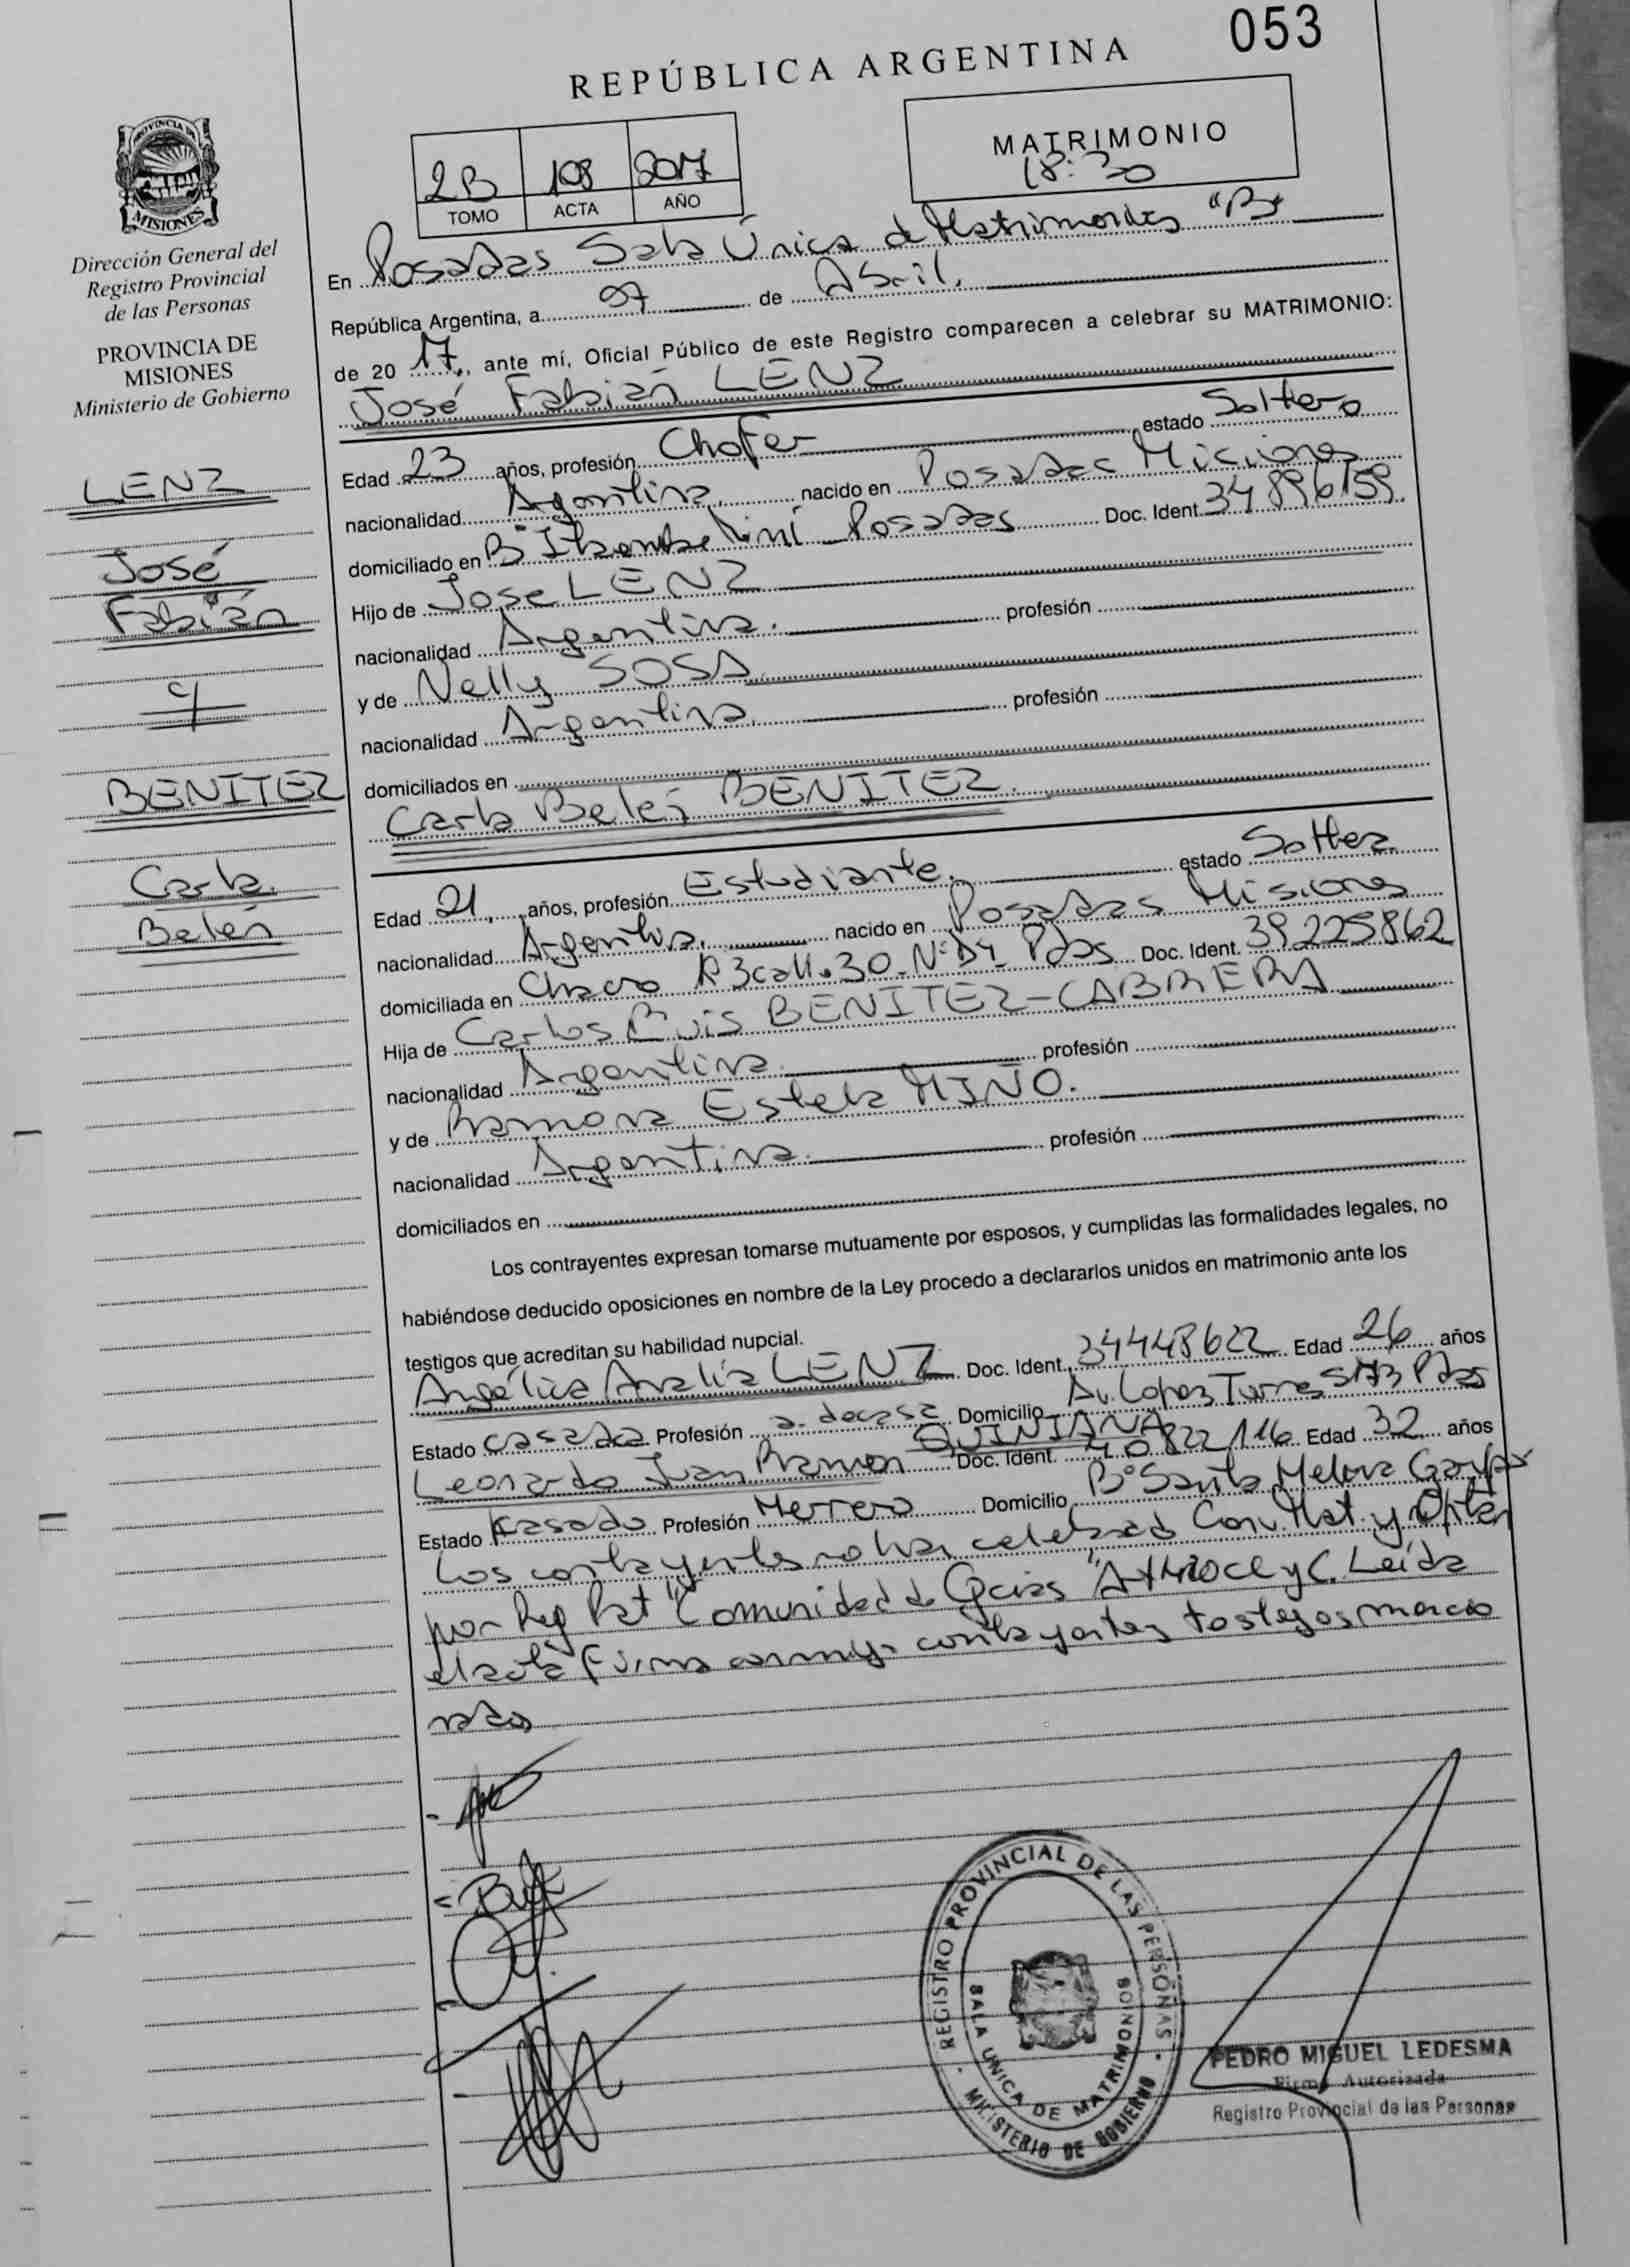 053
REPÚBLICA ARGENTINA
2B 108 2017
TOMO ACTA AÑO
MATRIMONIO
18:30
PROVINCIA DE
MISIONES
Dirección General del
Registro Provincial
de las Personas
PROVINCIA DE
MISIONES
Ministerio de Gobierno
LENZ
José
Fabián
c/
BENITEZ
Carla
Belén
En Posadas Sala Única de Matrimonios "B"
República Argentina, a 07 de Abril.
de 20 17, ante mí, Oficial Público de este Registro comparecen a celebrar su MATRIMONIO:
José Fabián LENZ
Edad 23 años, profesión Chofer estado Soltero
nacionalidad Argentina. nacido en Posadas Misiones
domiciliado en B° Posadas Doc. Ident. 34896159
Hijo de Jose LENZ
nacionalidad Argentina. profesión
y de Nelly SOSA
nacionalidad Argentina. profesión
domiciliados en
Carla Belén BENITEZ.
Edad 21, años, profesión Estudiante. estado Soltera
nacionalidad Argentina. nacido en Posadas Misiones
domiciliada en Chacra 30 Pdas Doc. Ident. 39225862
Hija de Carlos Luis BENITEZ-CABRERA
nacionalidad Argentina. profesión
y de Ramona Estela MIÑO.
nacionalidad Argentina. profesión
domiciliados en
Los contrayentes expresan tomarse mutuamente por esposos, y cumplidas las formalidades legales, no
habiéndose deducido oposiciones en nombre de la Ley procedo a declararlos unidos en matrimonio ante los
testigos que acreditan su habilidad nupcial.
Angélica Analía LENZ Doc. Ident. 34448622 Edad 26 años
Estado casada Profesión a. de casa Domicilio Av. Lopez Torres 5173 Pdas
Leonardo Juan Ramon QUINTANA Doc. Ident. 40822116 Edad 32 años
Estado casado Profesión Herrero Domicilio B° Santa Helena Garupá
Los contrayentes no han celebrado Conv. Mat. y Optan
por Reg Pat "Comunidad de Gcias" Art 420 CC y C. Leída
el acta firma conmigo contrayentes testigos mencio
nados
REGISTRO PROVINCIAL DE LAS PERSONAS
SALA UNICA DE MATRIMONIOS
MINISTERIO DE GOBIERNO
PEDRO MIGUEL LEDESMA
Firma Autorizada
Registro Provincial de las Personas